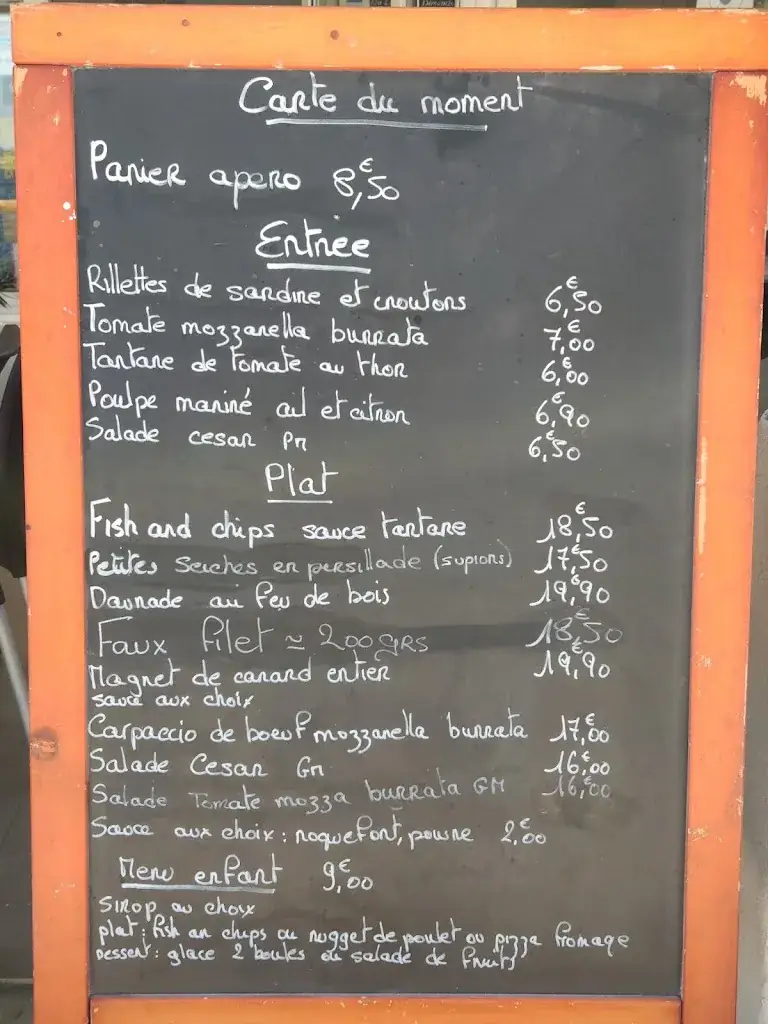 Carte du moment
Panier apero 8,50€
Entrée
Rillettes de sardine et croutons 6,50€
Tomate mozzarella burrata 7,00€
Tartare de tomate au thon 6,00€
Poulpe mariné ail et citron 6,90€
Salade cesar Pm 6,50€
Plat
Fish and chips sauce tartare 18,50€
Petites Seiches en persillade (supions) 17,50€
Daurade au feu de bois 19,90€
Faux filet ≃ 200grs 18,50€
Magret de canard entier 19,90€
sauce aux choix
Carpaccio de boeuf mozzarella burrata 17,00€
Salade Cesar Gm 16,00€
Salade Tomate mozza burrata GM 16,00€
Sauce aux choix : roquefort, poivre 2,00€
Menu enfant 9,00€
Sirop au choix
plat : fish an chips ou nugget de poulet ou pizza fromage
Dessert : glace 2 boules ou salade de fruits